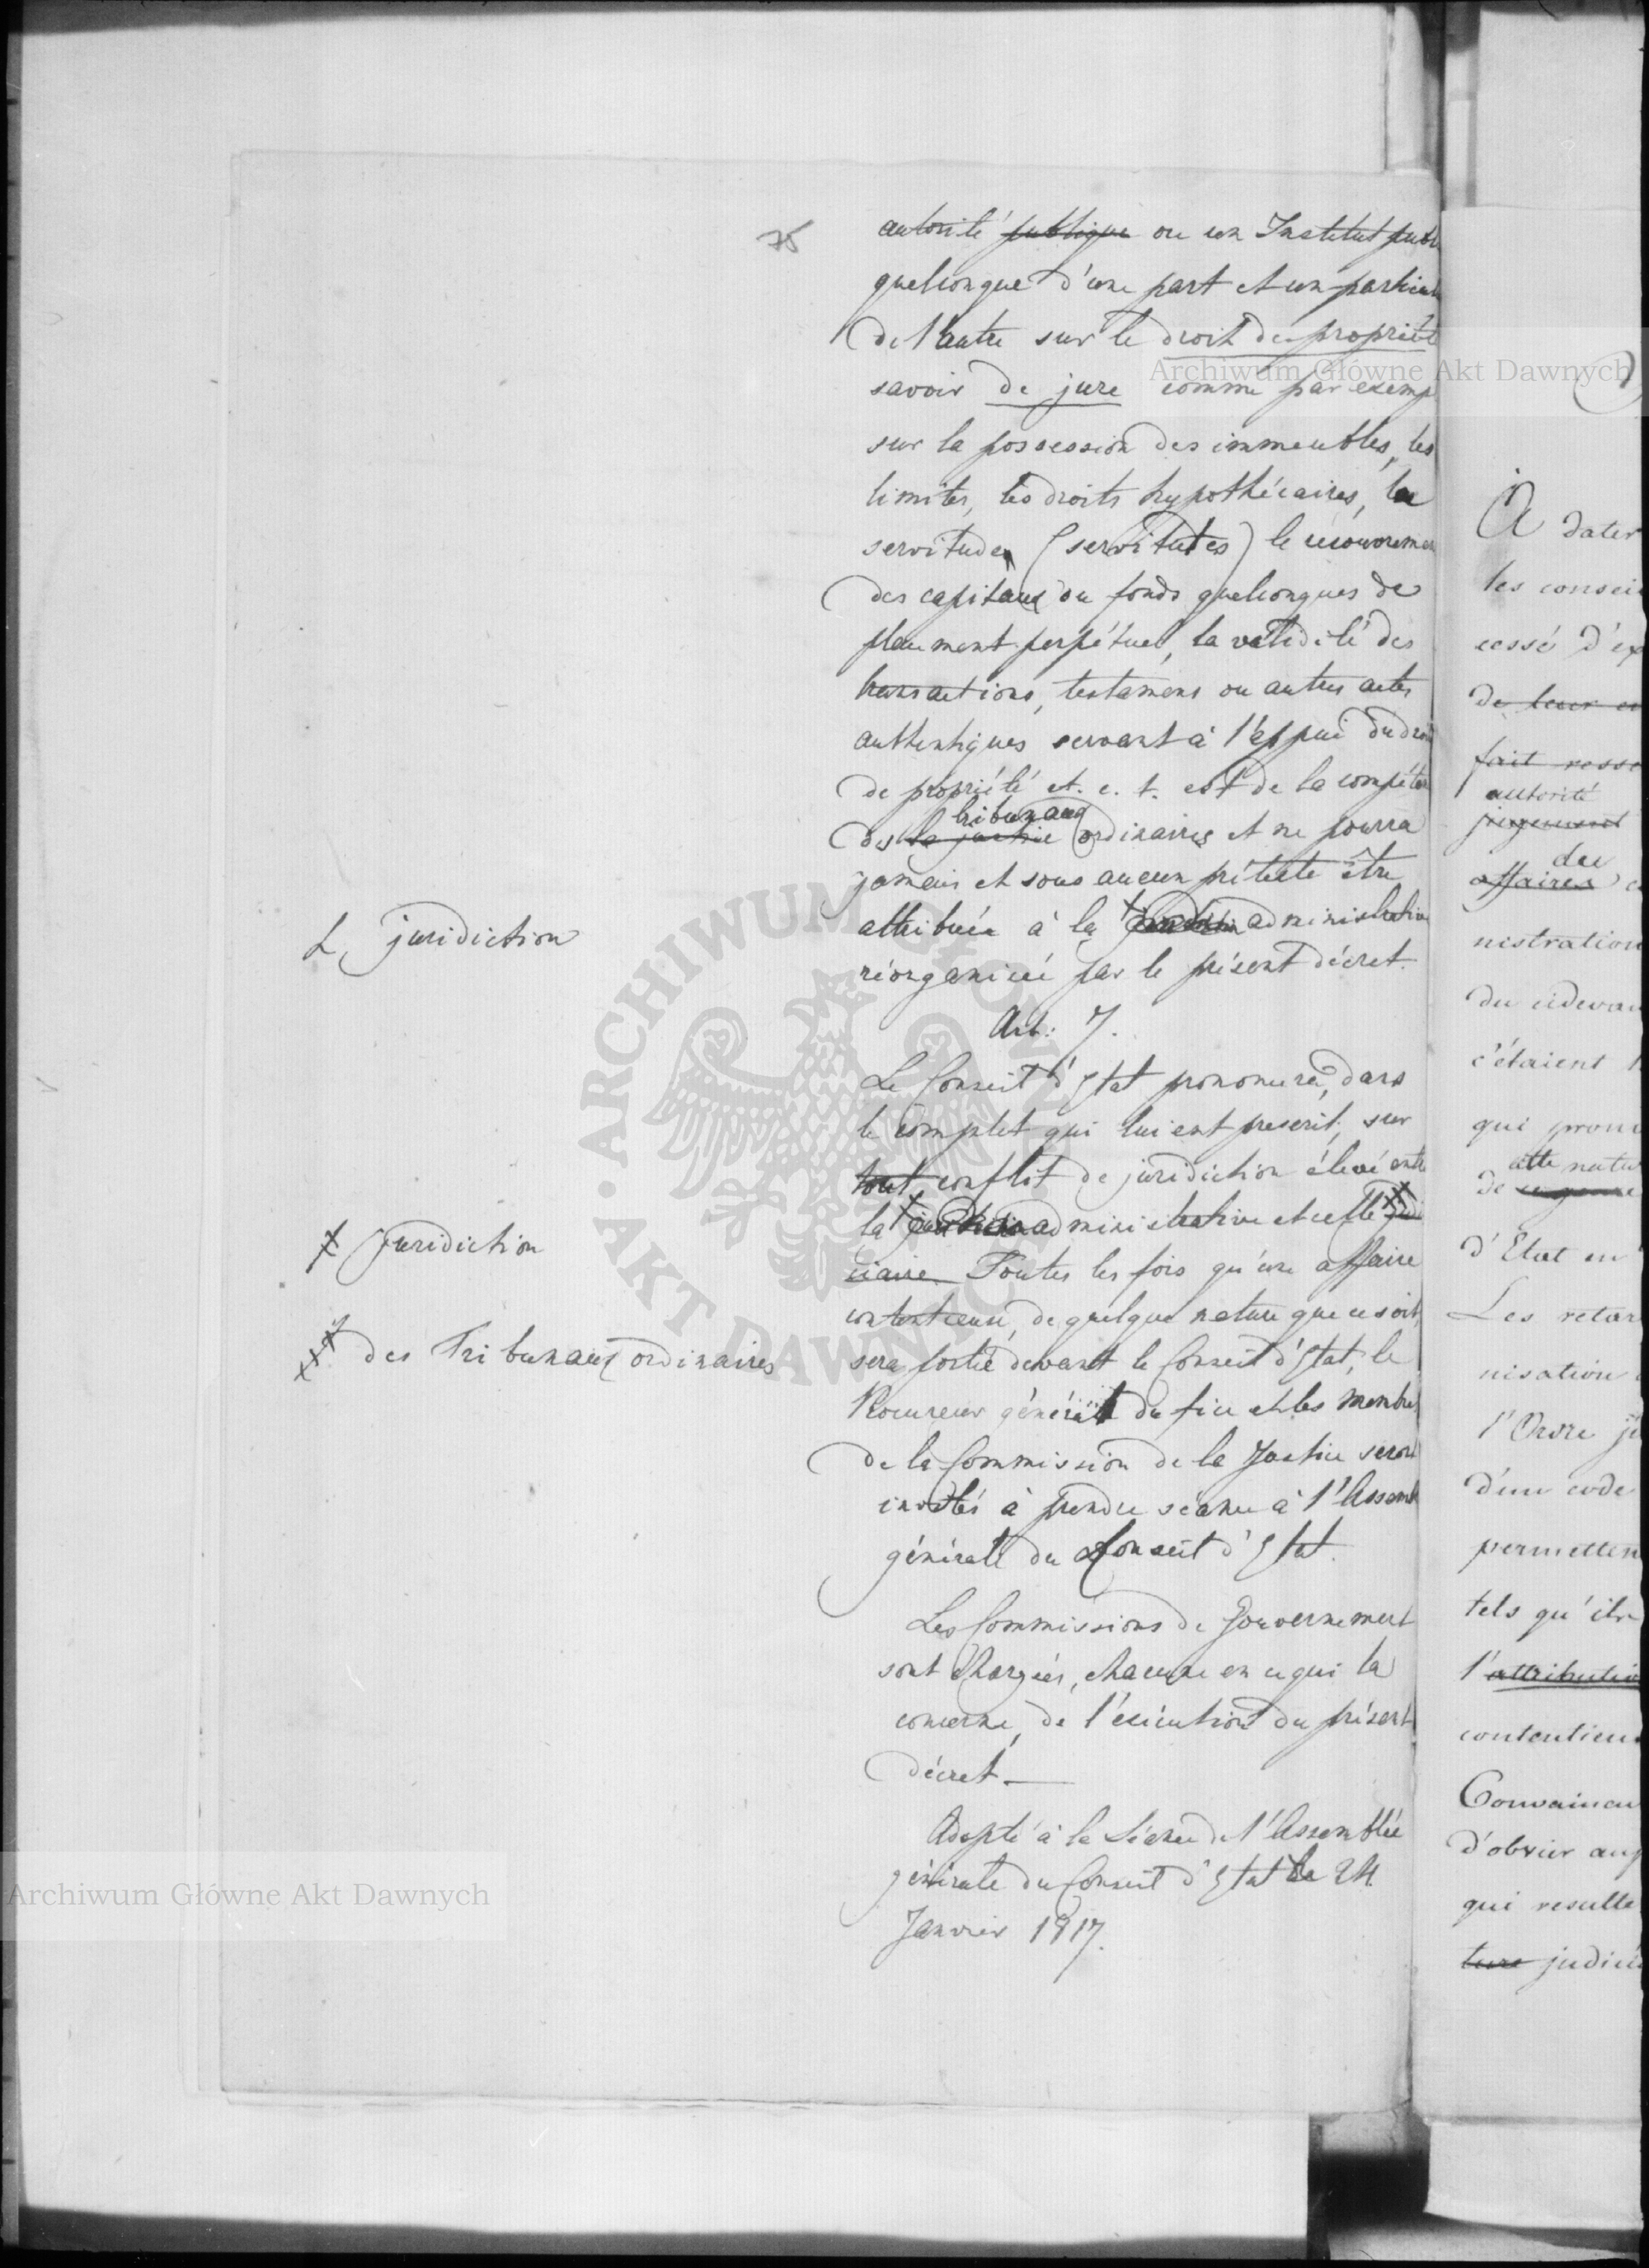 75
autorité publique ou un Institut publ
quelconque d'une part et un particul
de l'autre sur le droit de propriété
savoir de jure comme par exemp
sur la possession des immeubles, les
limites, les droits hypothécaires, les
servitudes (servitutes) le recouvremen
des capitaux ou fonds quelconques de
placement perpétuel, la validité des
transactions, testamens ou autres actes
authentiques servant à l'appui du droi
de propriété et. c. t. est de la compéten
tribunaux
des la justice ordinaires et ne pourra
jamais et sous aucun prétexte être
attribuée à la administrative
L juridiction
réorganisée par le présent décret.
Art: 7.
Le Conseil d'Etat prononcera, dans
le complet qui lui est prescrit, sur
tout conflit de juridiction élevé entre
la administrative et celle judi
‡ Juridiction
ciaire Toutes les fois qu'une affaire
contentieuse, de quelque nature que ce soit,
des Tribunaux ordinaires
sera portée devant le Conseil d'Etat, le
Procureur général du fisc et les membres
de la Commission de la Justice seront
invités à prendre séance à l'Assemb
générale du Conseil d'Etat.
Les Commissions de Gouvernement
sont chargées, chacune en ce qui la
concerne, de l'exécution du présent
décret.—
Adopté à la Séance de l'Assemblée
générale du Conseil d'Etat le 24.
Janvier 1817.
A dater
les consei
cessé d'ex
de leur
fait resso
autorité
jugement
des
affaires
nistration
du cidevan
c'étaient
qui pron
cette natu
de ce genre
d'Etat en
Les retar
nisation
l'Ordre ju
d'un code
permetten
tels qu'ils
l'attributio
contentieu
Convaincu
d'obvier aux
qui resulte
ture judici
Archiwum Główne Akt Dawnych
Archiwum Główne Akt Dawnych
ARCHIWUM GŁÓWNE AKT DAWNYCH